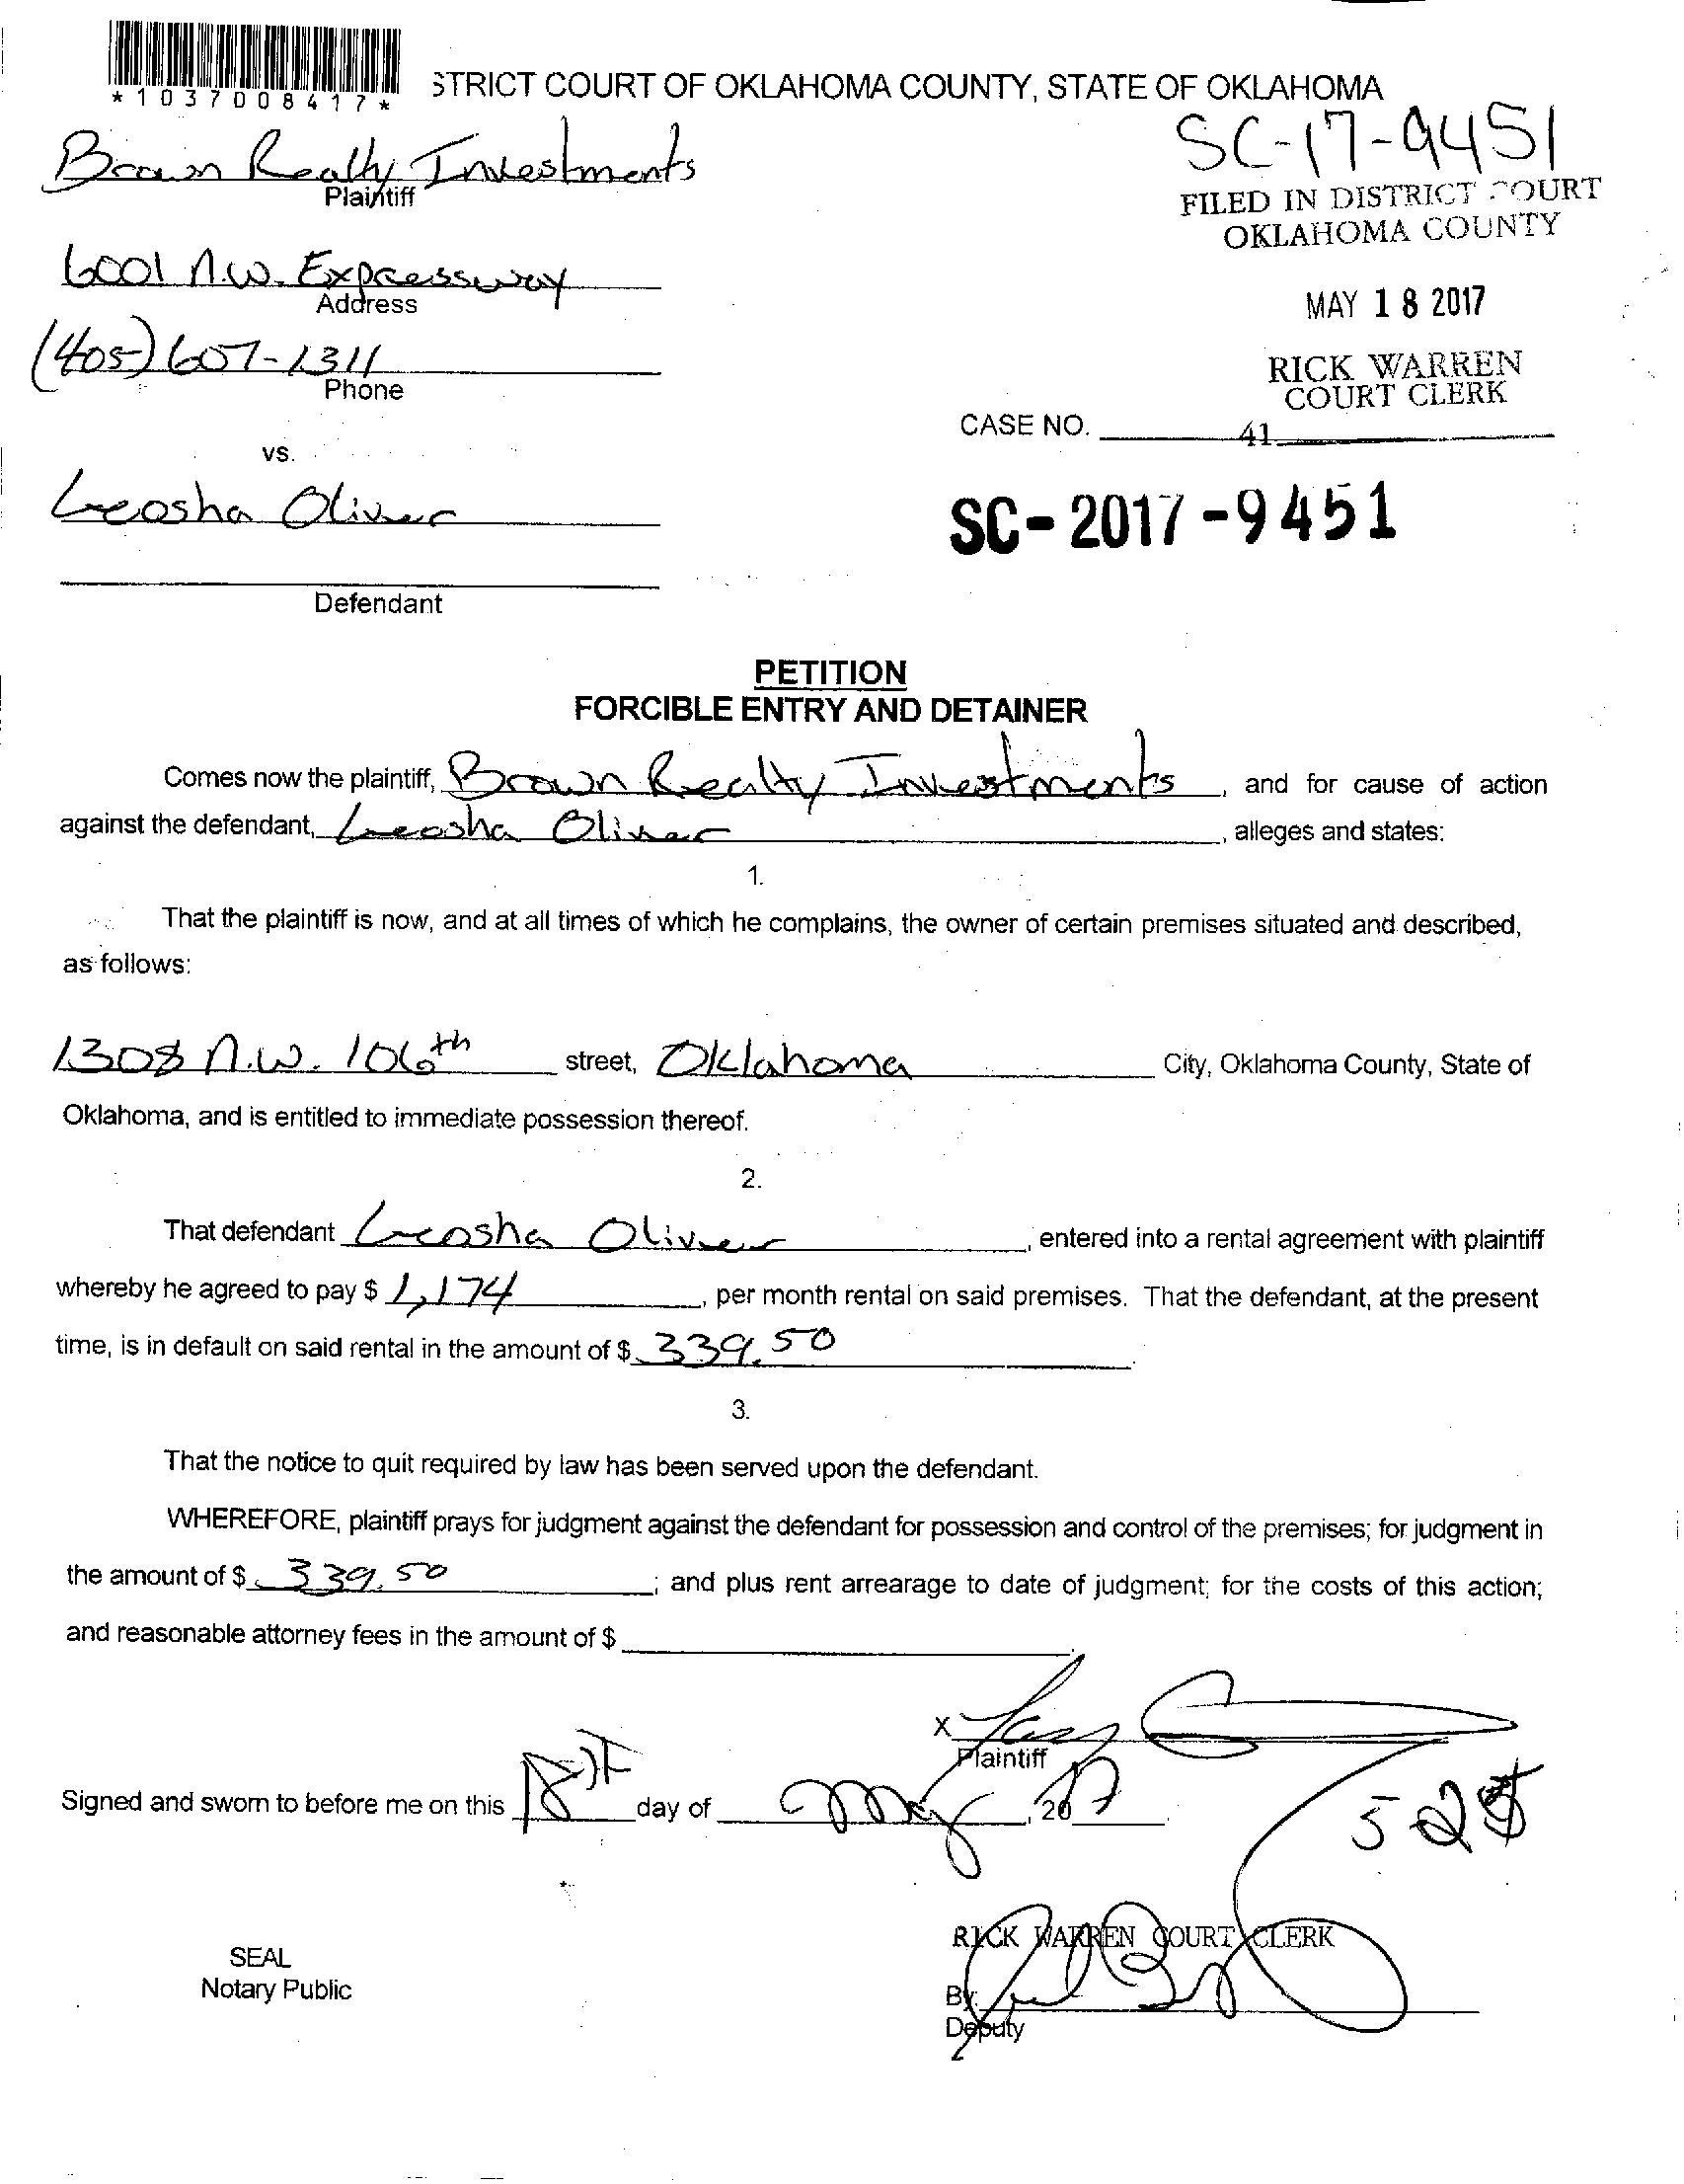 *1037008417*
STRICT COURT OF OKLAHOMA COUNTY, STATE OF OKLAHOMA
SC-17-9451
Brown Realty Investments
Plaintiff
FILED IN DISTRICT COURT
OKLAHOMA COUNTY
6001 N.W. Expressway
Address
MAY 18 2017
(405) 607-1311
Phone
RICK WARREN
COURT CLERK
CASE NO. 41
vs.
Leosha Oliver
SC-2017-9451
Defendant
PETITION
FORCIBLE ENTRY AND DETAINER
Comes now the plaintiff, Brown Realty Investments, and for cause of action
against the defendant, Leosha Oliver, alleges and states:
1.
That the plaintiff is now, and at all times of which he complains, the owner of certain premises situated and described,
as follows:
1308 N.W. 106th street, Oklahoma City, Oklahoma County, State of
Oklahoma, and is entitled to immediate possession thereof.
2.
That defendant Leosha Oliver, entered into a rental agreement with plaintiff
whereby he agreed to pay $ 1,174, per month rental on said premises. That the defendant, at the present
time, is in default on said rental in the amount of $ 339.50.
3.
That the notice to quit required by law has been served upon the defendant.
WHEREFORE, plaintiff prays for judgment against the defendant for possession and control of the premises; for judgment in
the amount of $ 339.50; and plus rent arrearage to date of judgment; for the costs of this action;
and reasonable attorney fees in the amount of $
X
Plaintiff
Signed and sworn to before me on this 18th day of May, 2017
RICK WARREN COURT CLERK
SEAL
Notary Public
By
Deputy